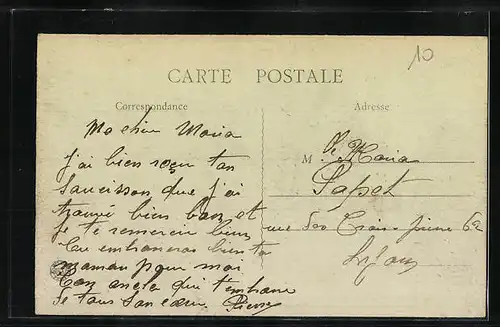 10
CARTE POSTALE
Correspondance
Ma chère Maria
j'ai bien reçu ton
saucisson que j'ai
trouvé bien bon et
je te remercie bien
tu embrasseras bien ta
maman pour moi
Ton oncle qui t'embrasse
de tout son cœur Pierre
Adresse
M Maria
Sapet
rue 62